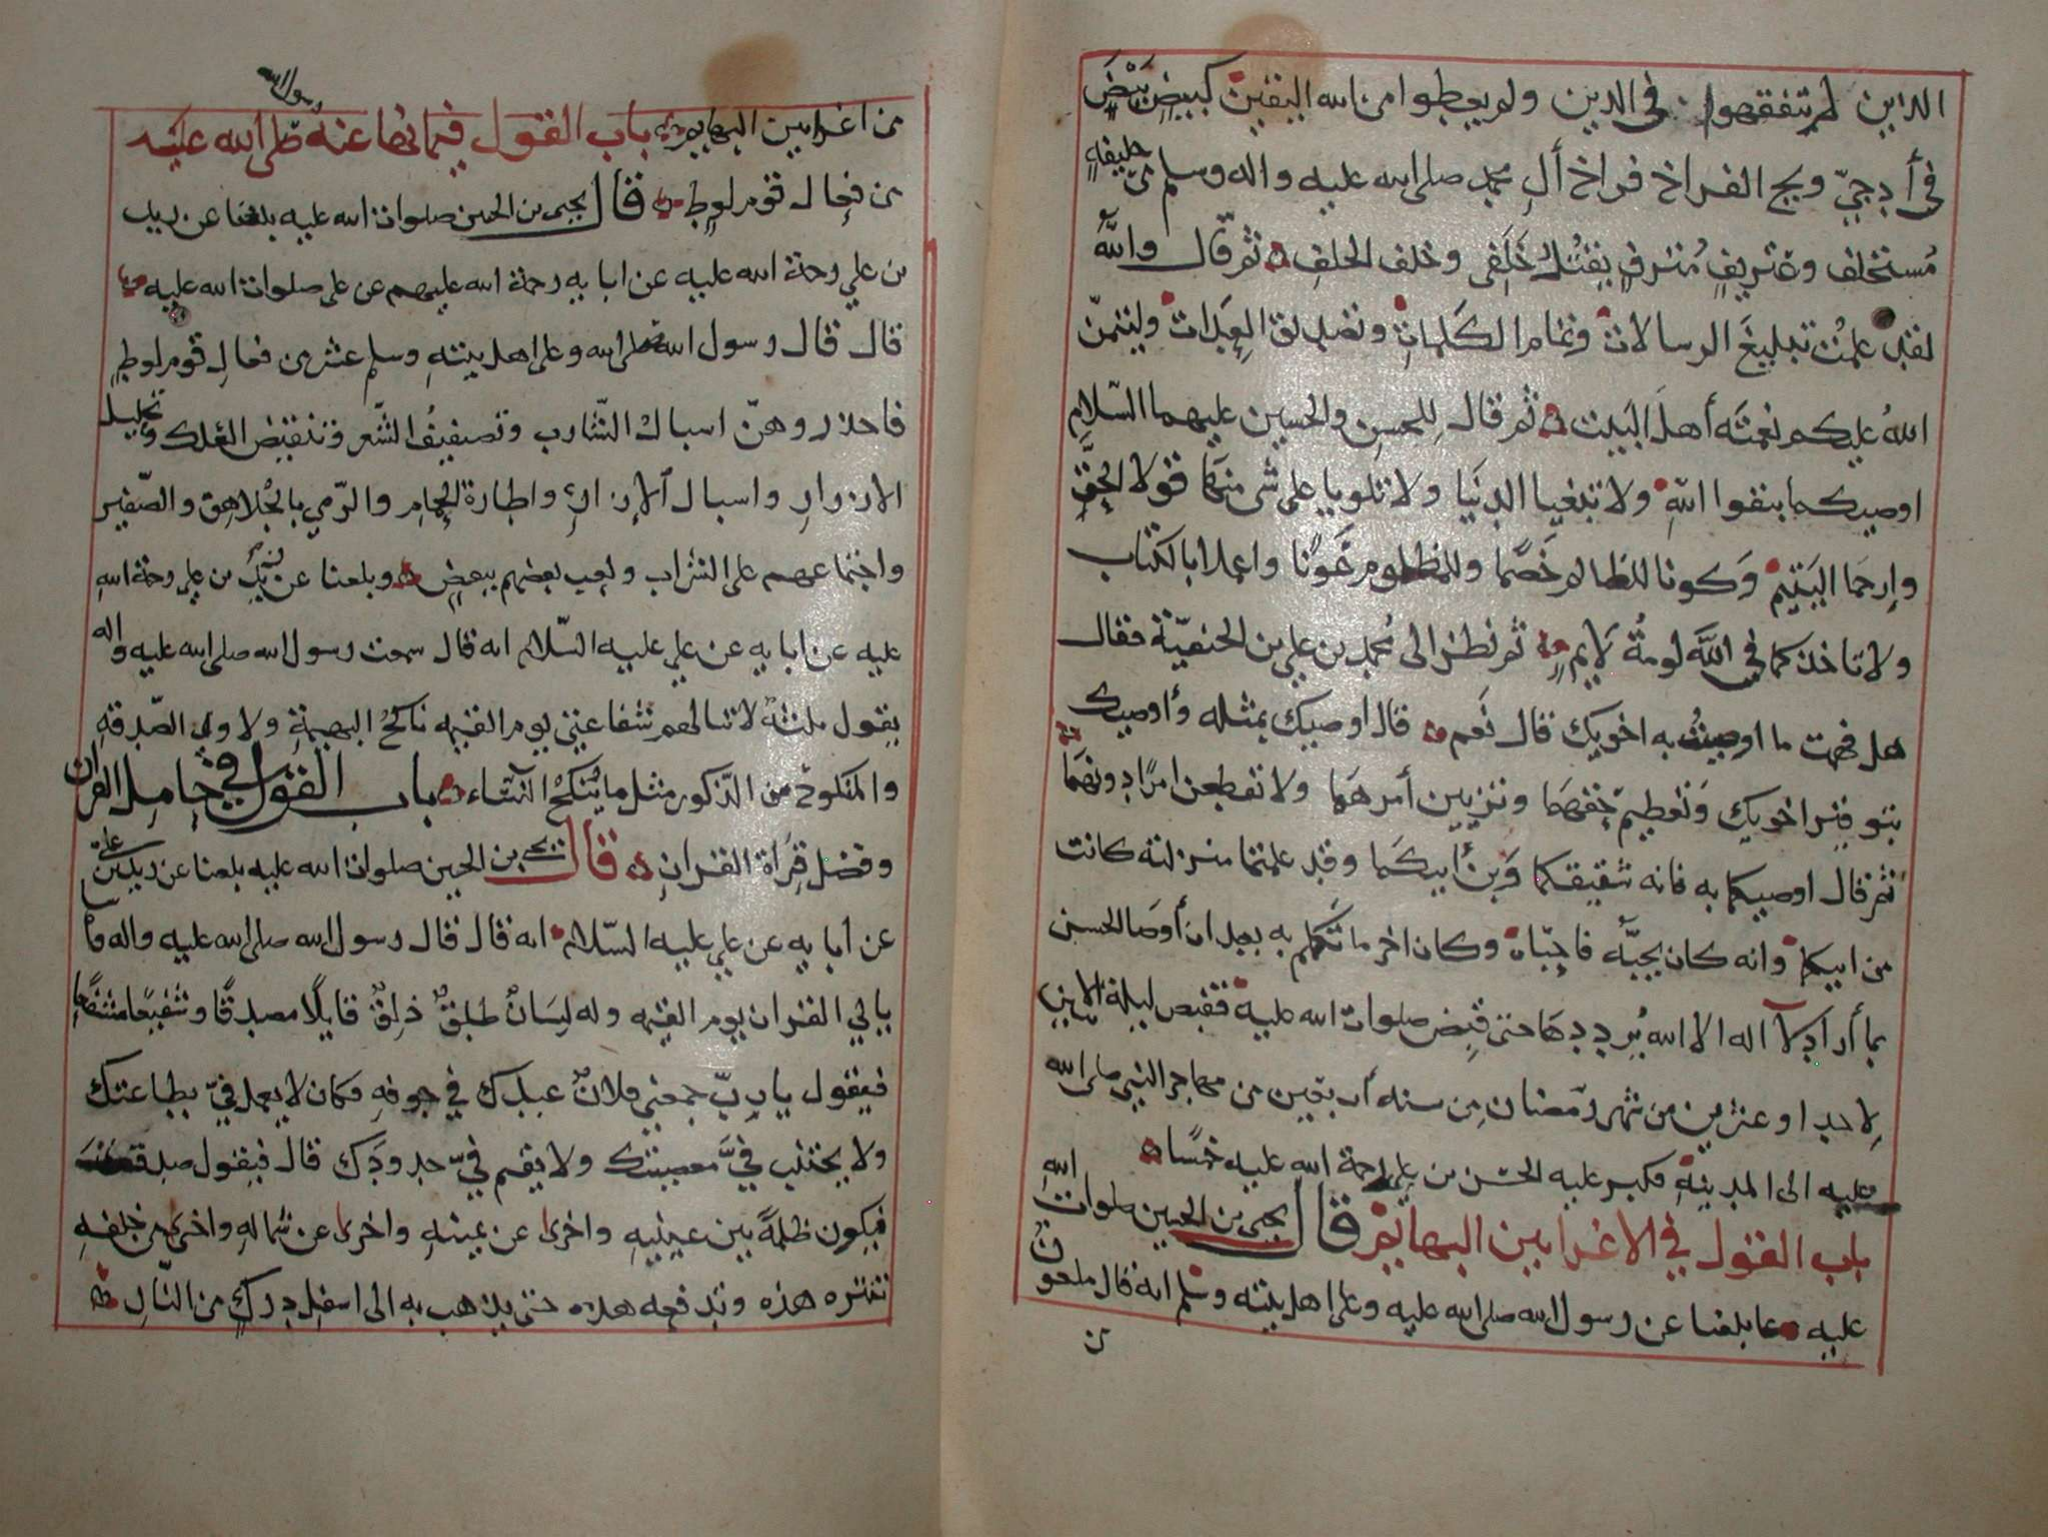 الذين لم يتفقهوا في الدين ولم يعطوا من الله اليقين كبيض بيض
في أداحي ويح الفراخ فراخ آل محمد صلى الله عليه واله وسلم من خليفة
مستخلف وعتريف مترف يقتل خلفي وخلف الخلف ثم قال والله
لقد علمت تبليغ الرسالات وتمام الكلمات وتصديق العدات وليتمن
الله عليكم نعمته أهل البيت ثم قال للحسن والحسين عليهما السلام
اوصيكما بتقوا الله ولا تبغيا الدنيا ولا تلويا على شي منها قولا الحق
وارحما اليتيم وكونا للظالم خصما وللمظلوم عونا واعملا بالكتاب
ولا تاخذكما في الله لومة لايم ثم نظر الى محمد بن علي بن الحنفية فقال
هل فهمت ما اوصيت به اخويك قال نعم قال اوصيك بمثله وأوصيك
بتوقير اخويك وتعظيم حقهما وتزيين أمرهما ولا تقطعن امرا دونهما
ثم قال اوصيكما به فانه شقيقكما وبن أبيكما وقد علمتما منزلته كانت
من ابيكما وانه كان يحبه فاحباه وكان اخر ما تكلم به بعد ان أوصا الحسن
بما أراد لا اله الا الله يرددها حتى قبض صلوات الله عليه فقبض ليلة الاثنين
لاحدا وعشرين من شهر رمضان من سنه أربعين من مهاجر النبي صلى الله
عليه الى المدينة فكبر عليه الحسن بن علي رحمة الله عليه خمسا
باب القول في الاغرا بين البهايم قال يحيى بن الحسين صلوات الله
عليه بلغنا عن رسول الله صلى الله عليه وعلى اهل بيته وسلم انه قال ملعون
من
من اغرا بين البهايم باب القول فيما نها عنه رسول الله صلى الله عليه
من فعال قوم لوط قال يحيى بن الحسين صلوات الله عليه بلغنا عن زيد
بن علي رحمة الله عليه عن ابايه رحمة الله عليهم عن علي صلوات الله عليه
قال قال رسول الله صلى الله وعلى اهل بيته وسلم عشر من فعال قوم لوط
فاحذروهن اسبال الشارب وتصفيف الشعر وتنقيض العلك وتحليل
الازرار واسبال الازار واطارة الحمام والرمي بالجلاهق والصفير
واجتماعهم على الشراب ولعب بعضهم ببعض وبلغنا عن زيد بن علي رحمة الله
عليه عن ابايه عن علي عليه السلام انه قال سمعت رسول الله صلى الله عليه واله
يقول ثلثة لا تنالهم شفاعتي يوم القيمه ناكح البهيمة ولاوي الصدقه
والمنكوح من الذكور مثل ما ينكح النساء باب القول في حامل القرآن
وفضل قراة القران قال يحيى بن الحسين صلوات الله عليه بلغنا عن زيد بن علي
عن ابايه عن علي عليه السلام انه قال قال رسول الله صلى الله عليه واله
ياتي القران يوم القيمه وله لسان طلق ذلق قايلا مصدقا وشفيعا مشفعا
فيقول يا رب جمعني فلان عبدك في جوفه فكان لا يعمل في بطاعتك
ولا يجتنب في معصيتك ولا يقم في حدودك قال فيقول صدقت
فيكون ظلمة بين عينيه واخرى عن يمينه واخرى عن شماله واخرى من خلفه
تبتزه هذه وتدفعه هذه حتى يذهب به الى اسفل درك من النار